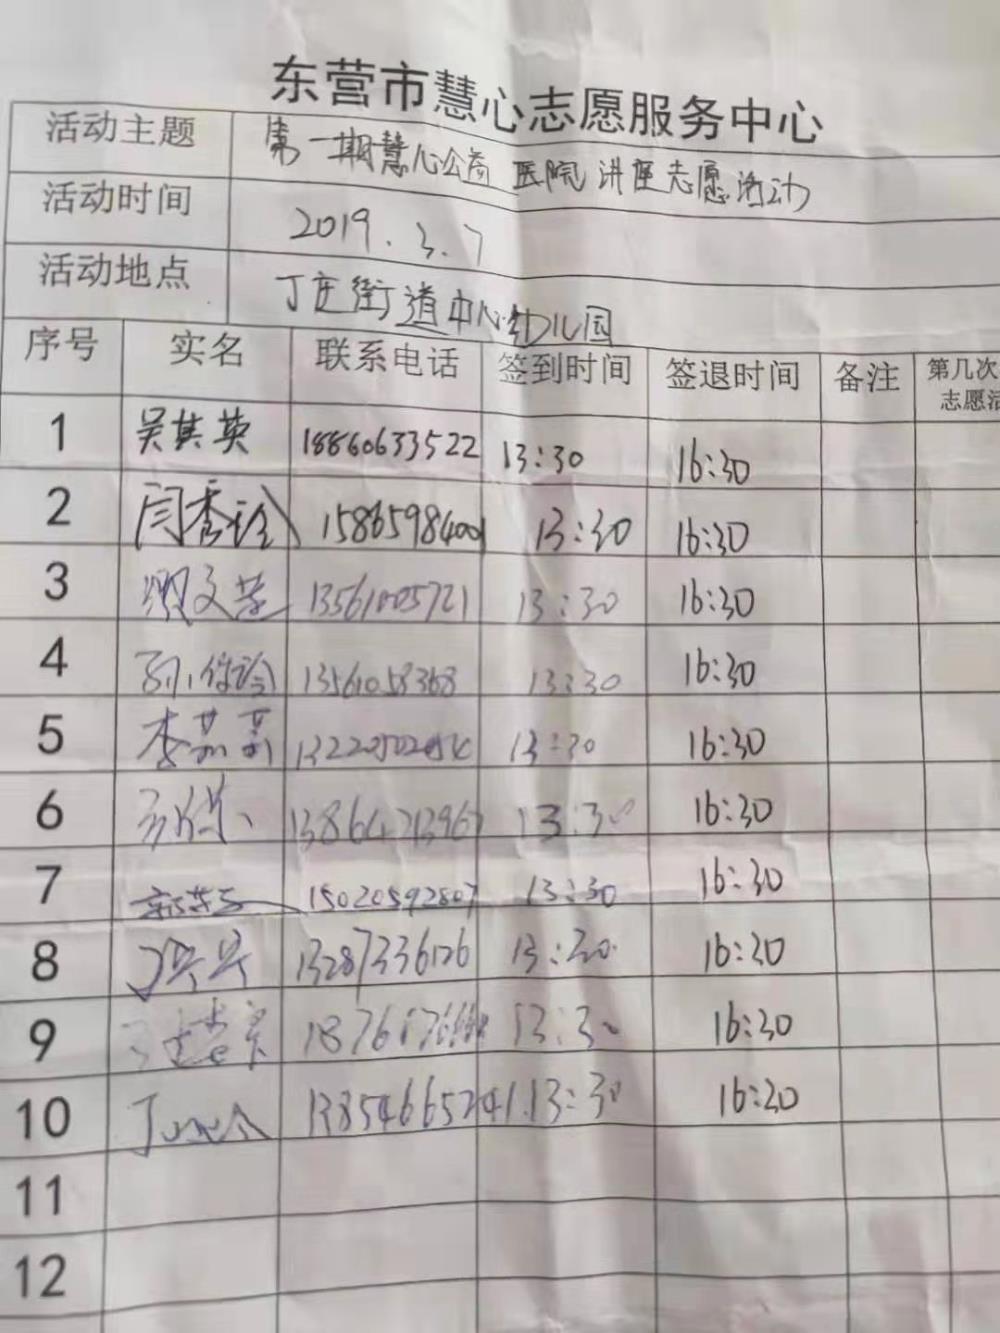 东营市慧心志愿服务中心
活动主题 第一期慧心公益医院讲座志愿活动
活动时间 2019.3.7
活动地点 丁庄街道中心幼儿园
序号 实名 联系电话 签到时间 签退时间 备注 第几次
志愿活
1 吴其英 18860633522 13:30 16:30
2 闫秀玲 15865984001 13:30 16:30
3 13561005721 13:30 16:30
4 13561058368 13:30 16:30
5 13:30 16:30
6 13864713967 13:30 16:30
7 15020592807 13:30 16:30
8 13287336126 13:30 16:30
9 13:30 16:30
10 13854665241 13:30 16:30
11
12